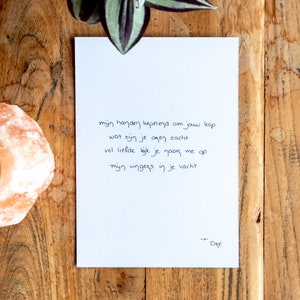 mijn handen kroelend om jouw kop
wat zijn je oren zacht
vol liefde kijk je naar me op
mijn vingers in je vacht